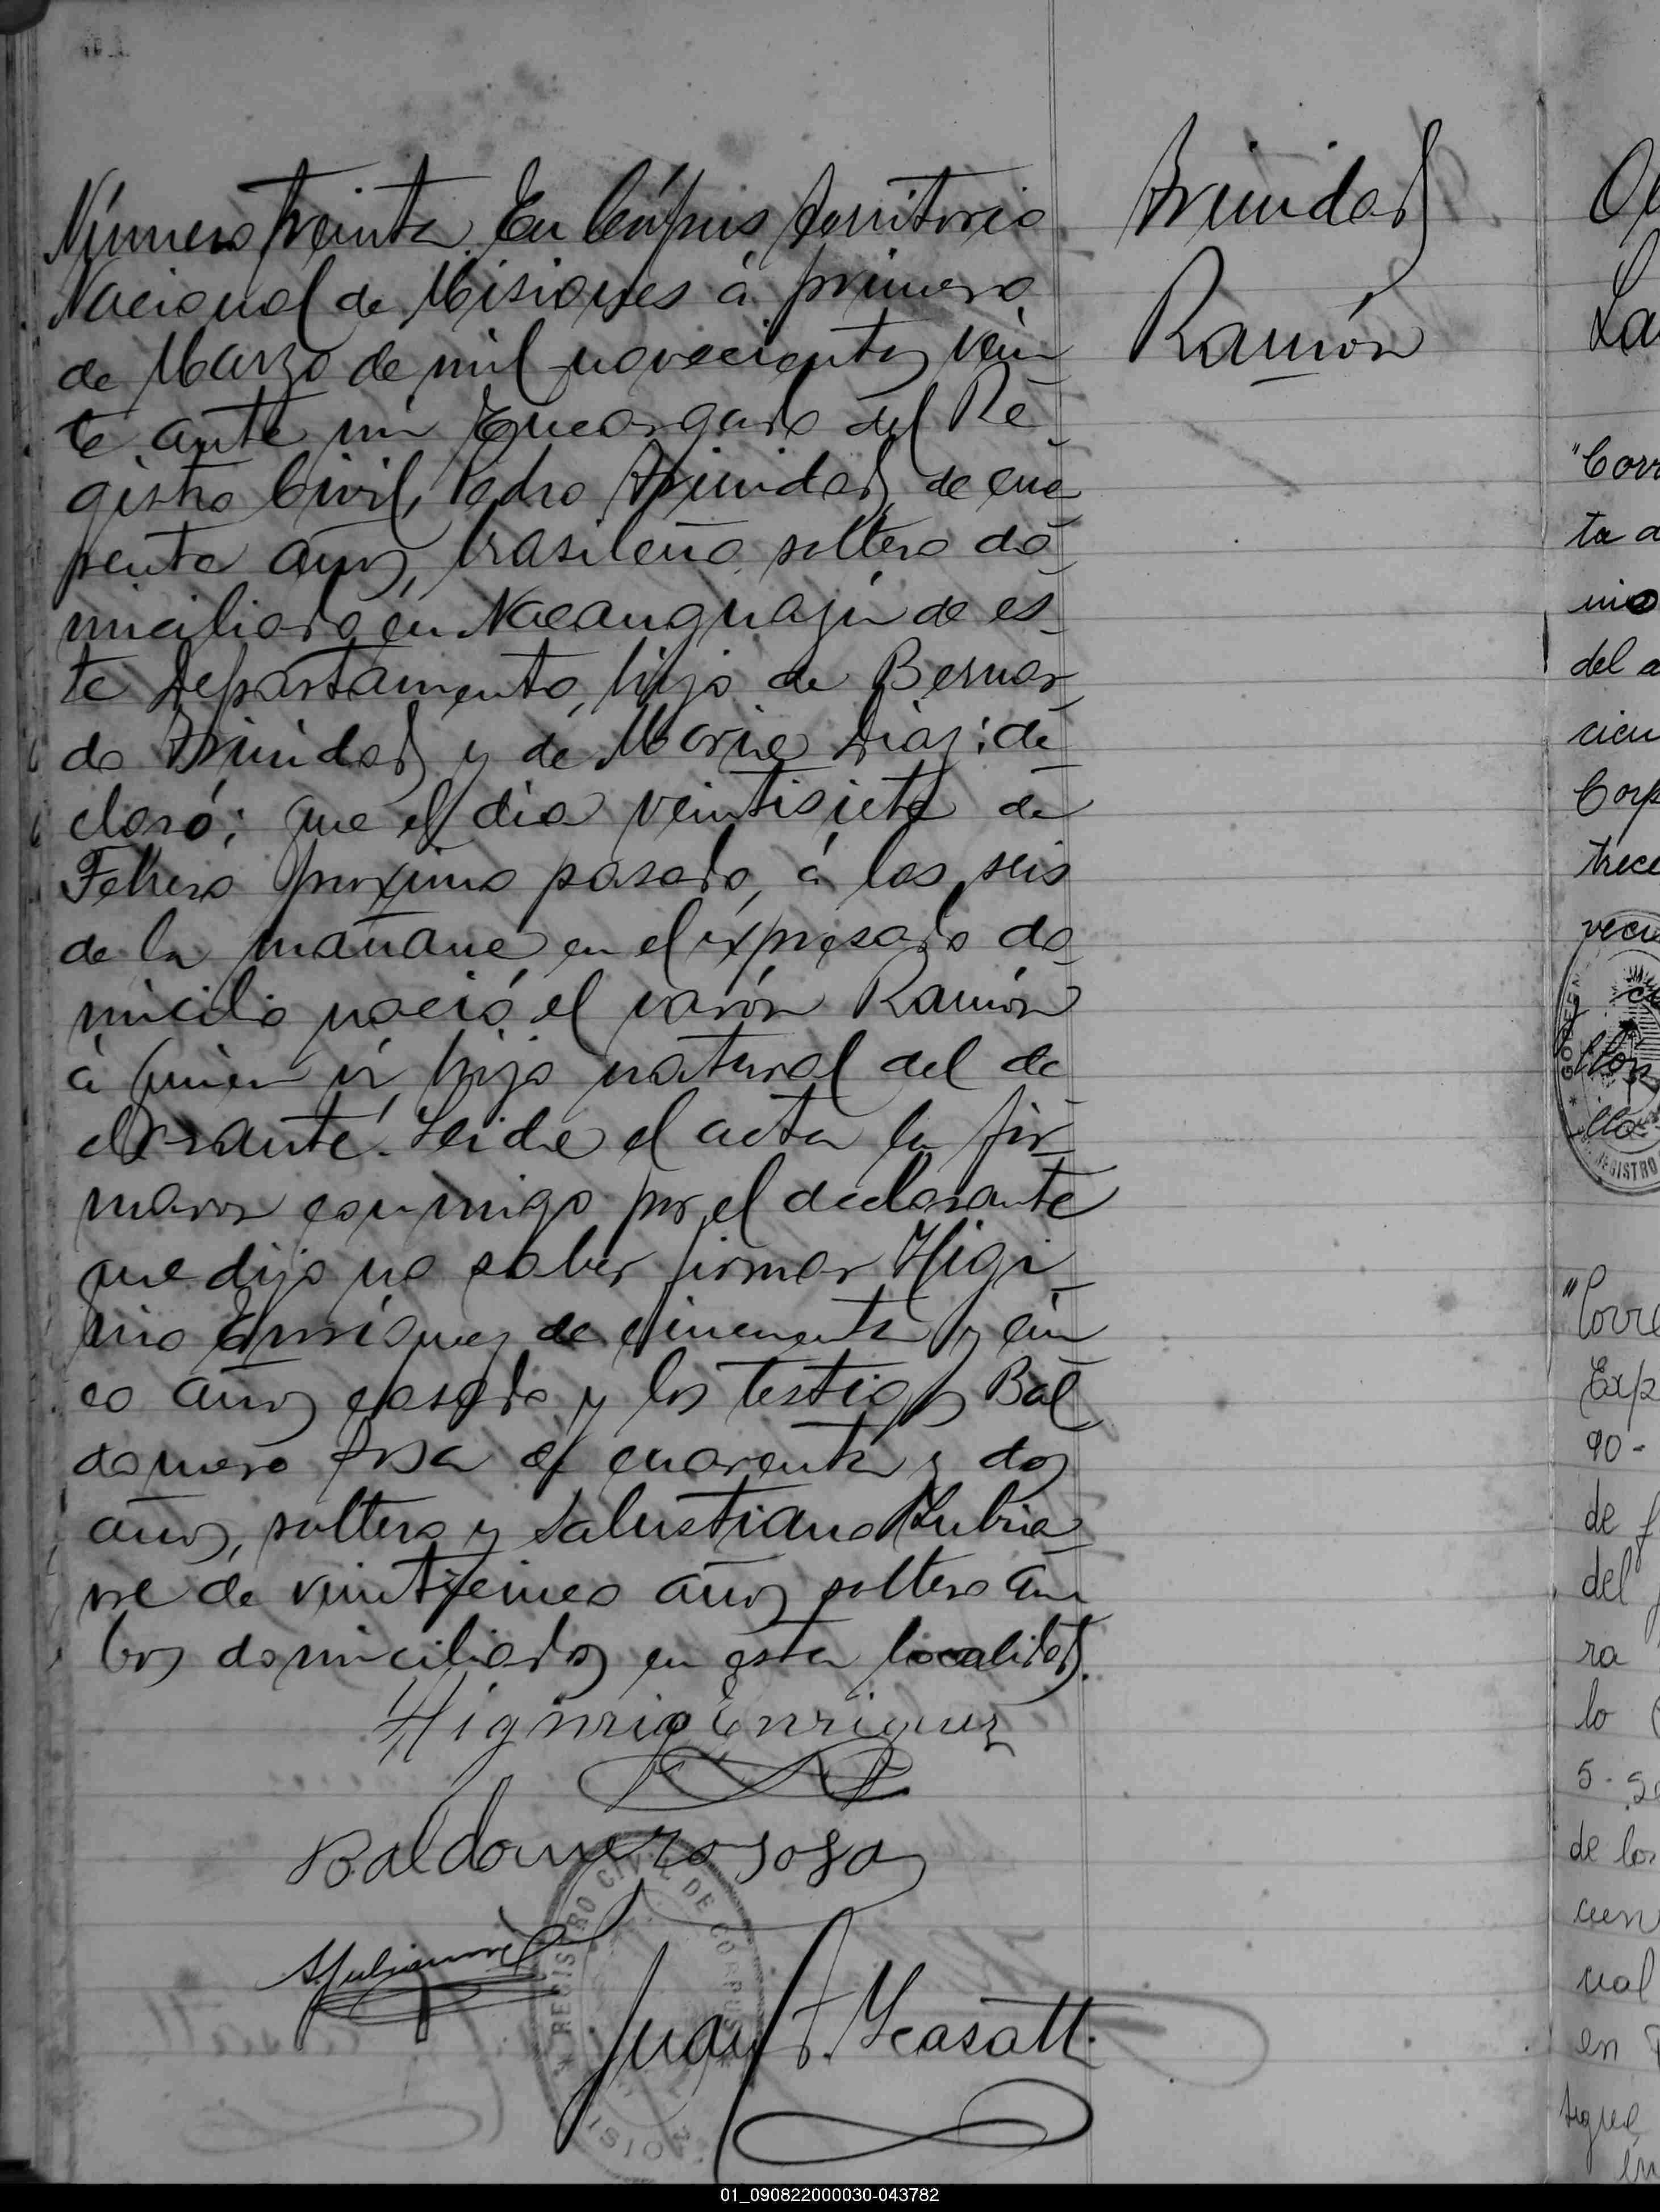 Número treinta. En Córpus territorio
Nacional de Misiones á primero
de Marzo de mil novecientos vein
te ante mí Encargado del Re
gistro Civil, Pedro Trinidad, de cua
renta años, brasileño, soltero do
miciliado en Ñacanguazú de es
te Departamento, hijo de Bernar
do Trinidad y de Maria Diaz: de
claró: que el dia veintisiete de
Febrero proximo pasado, á las seis
de la mañana en el expresado do
micilio nació el varón Ramón
á quien ví, hijo natural del de
clarante. Leida el acta la fir
maron conmigo por el declarante
que dijo no saber firmar Higi
nio Enrísquez de cincuenta y cin
co años casado y los testigos Bal
domero Sosa de cuarenta y dos
años, soltero y Salustiano
de veinticinco años soltero am
bos domiciliados en esta localidad.
Higinio Enriquez
Baldomero Sosa
Juan F.
Trinidad
Ramón
REGISTRO CIVIL DE CORPUS
"Corr
ta a
del a
cien
Corp
trece
REGISTRO
"Corre
Exp
90-
de
del
ra
lo
de los
en
01_090822000030-043782